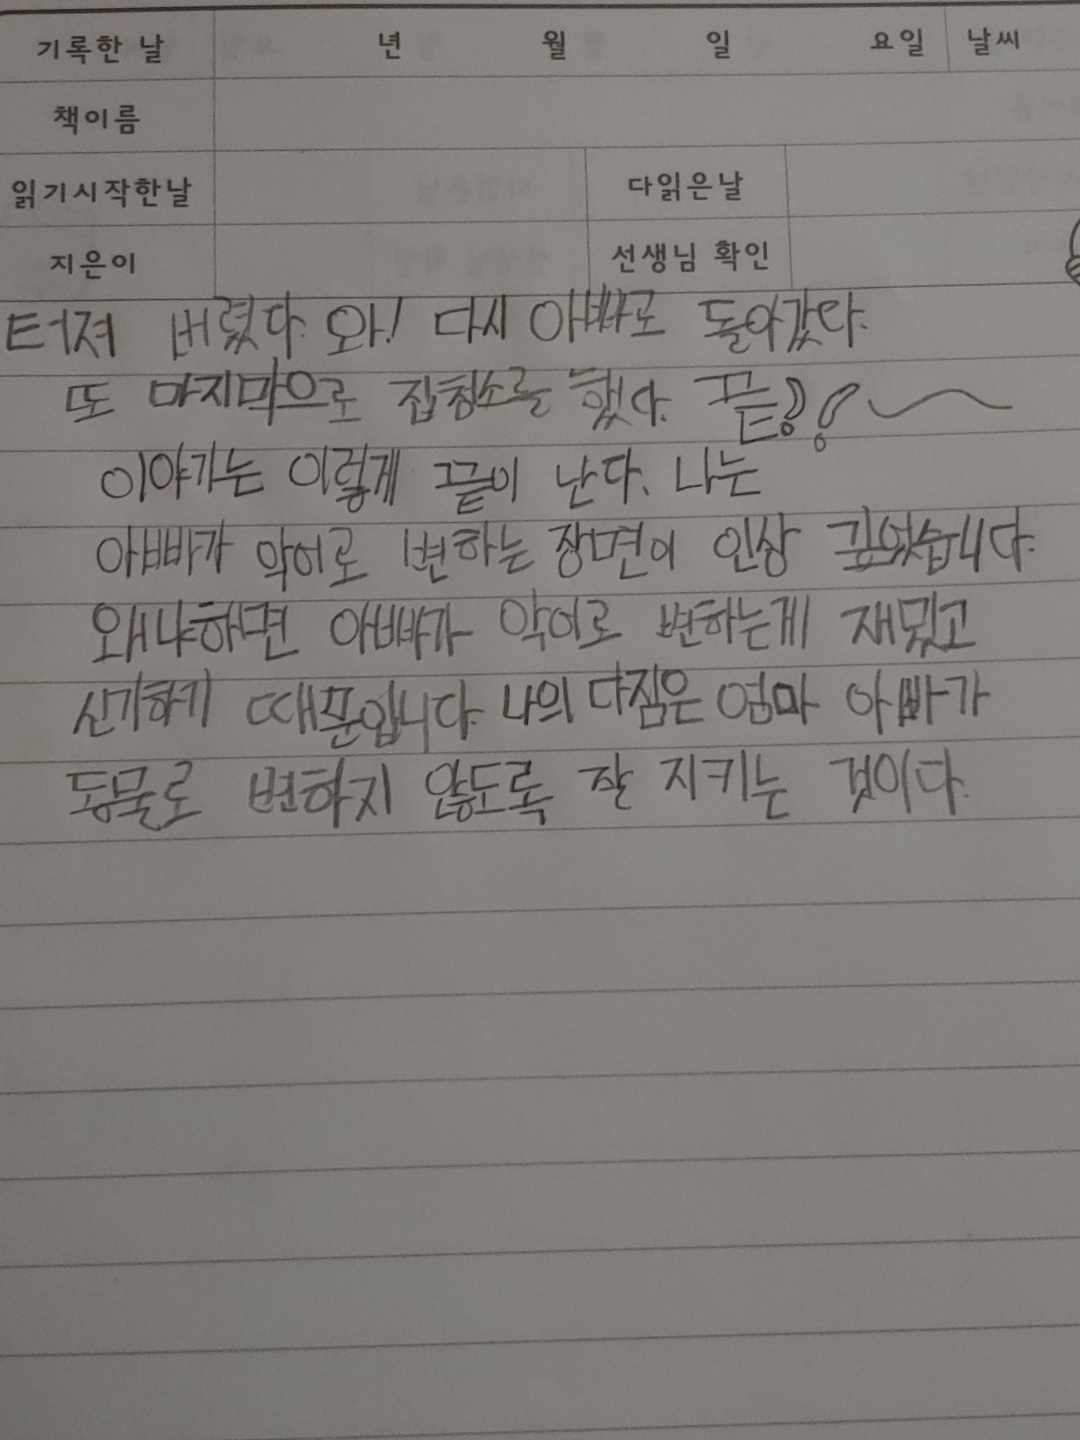 기록한 날 년 월 일 요일 날씨
책이름
읽기시작한날 다읽은날
지은이 선생님 확인
터져 버렸다. 와! 다시 아빠로 돌아갔다.
또 마지막으로 집청소를 했다. 끝!!~
이야기는 이렇게 끝이 난다. 나는
아빠가 악어로 변하는 장면이 인상 깊었습니다.
왜냐하면 아빠가 악어로 변하는게 재밌고
신기하기 때문입니다. 나의 다짐은 엄마 아빠가
동물로 변하지 않도록 잘 지키는 것이다.